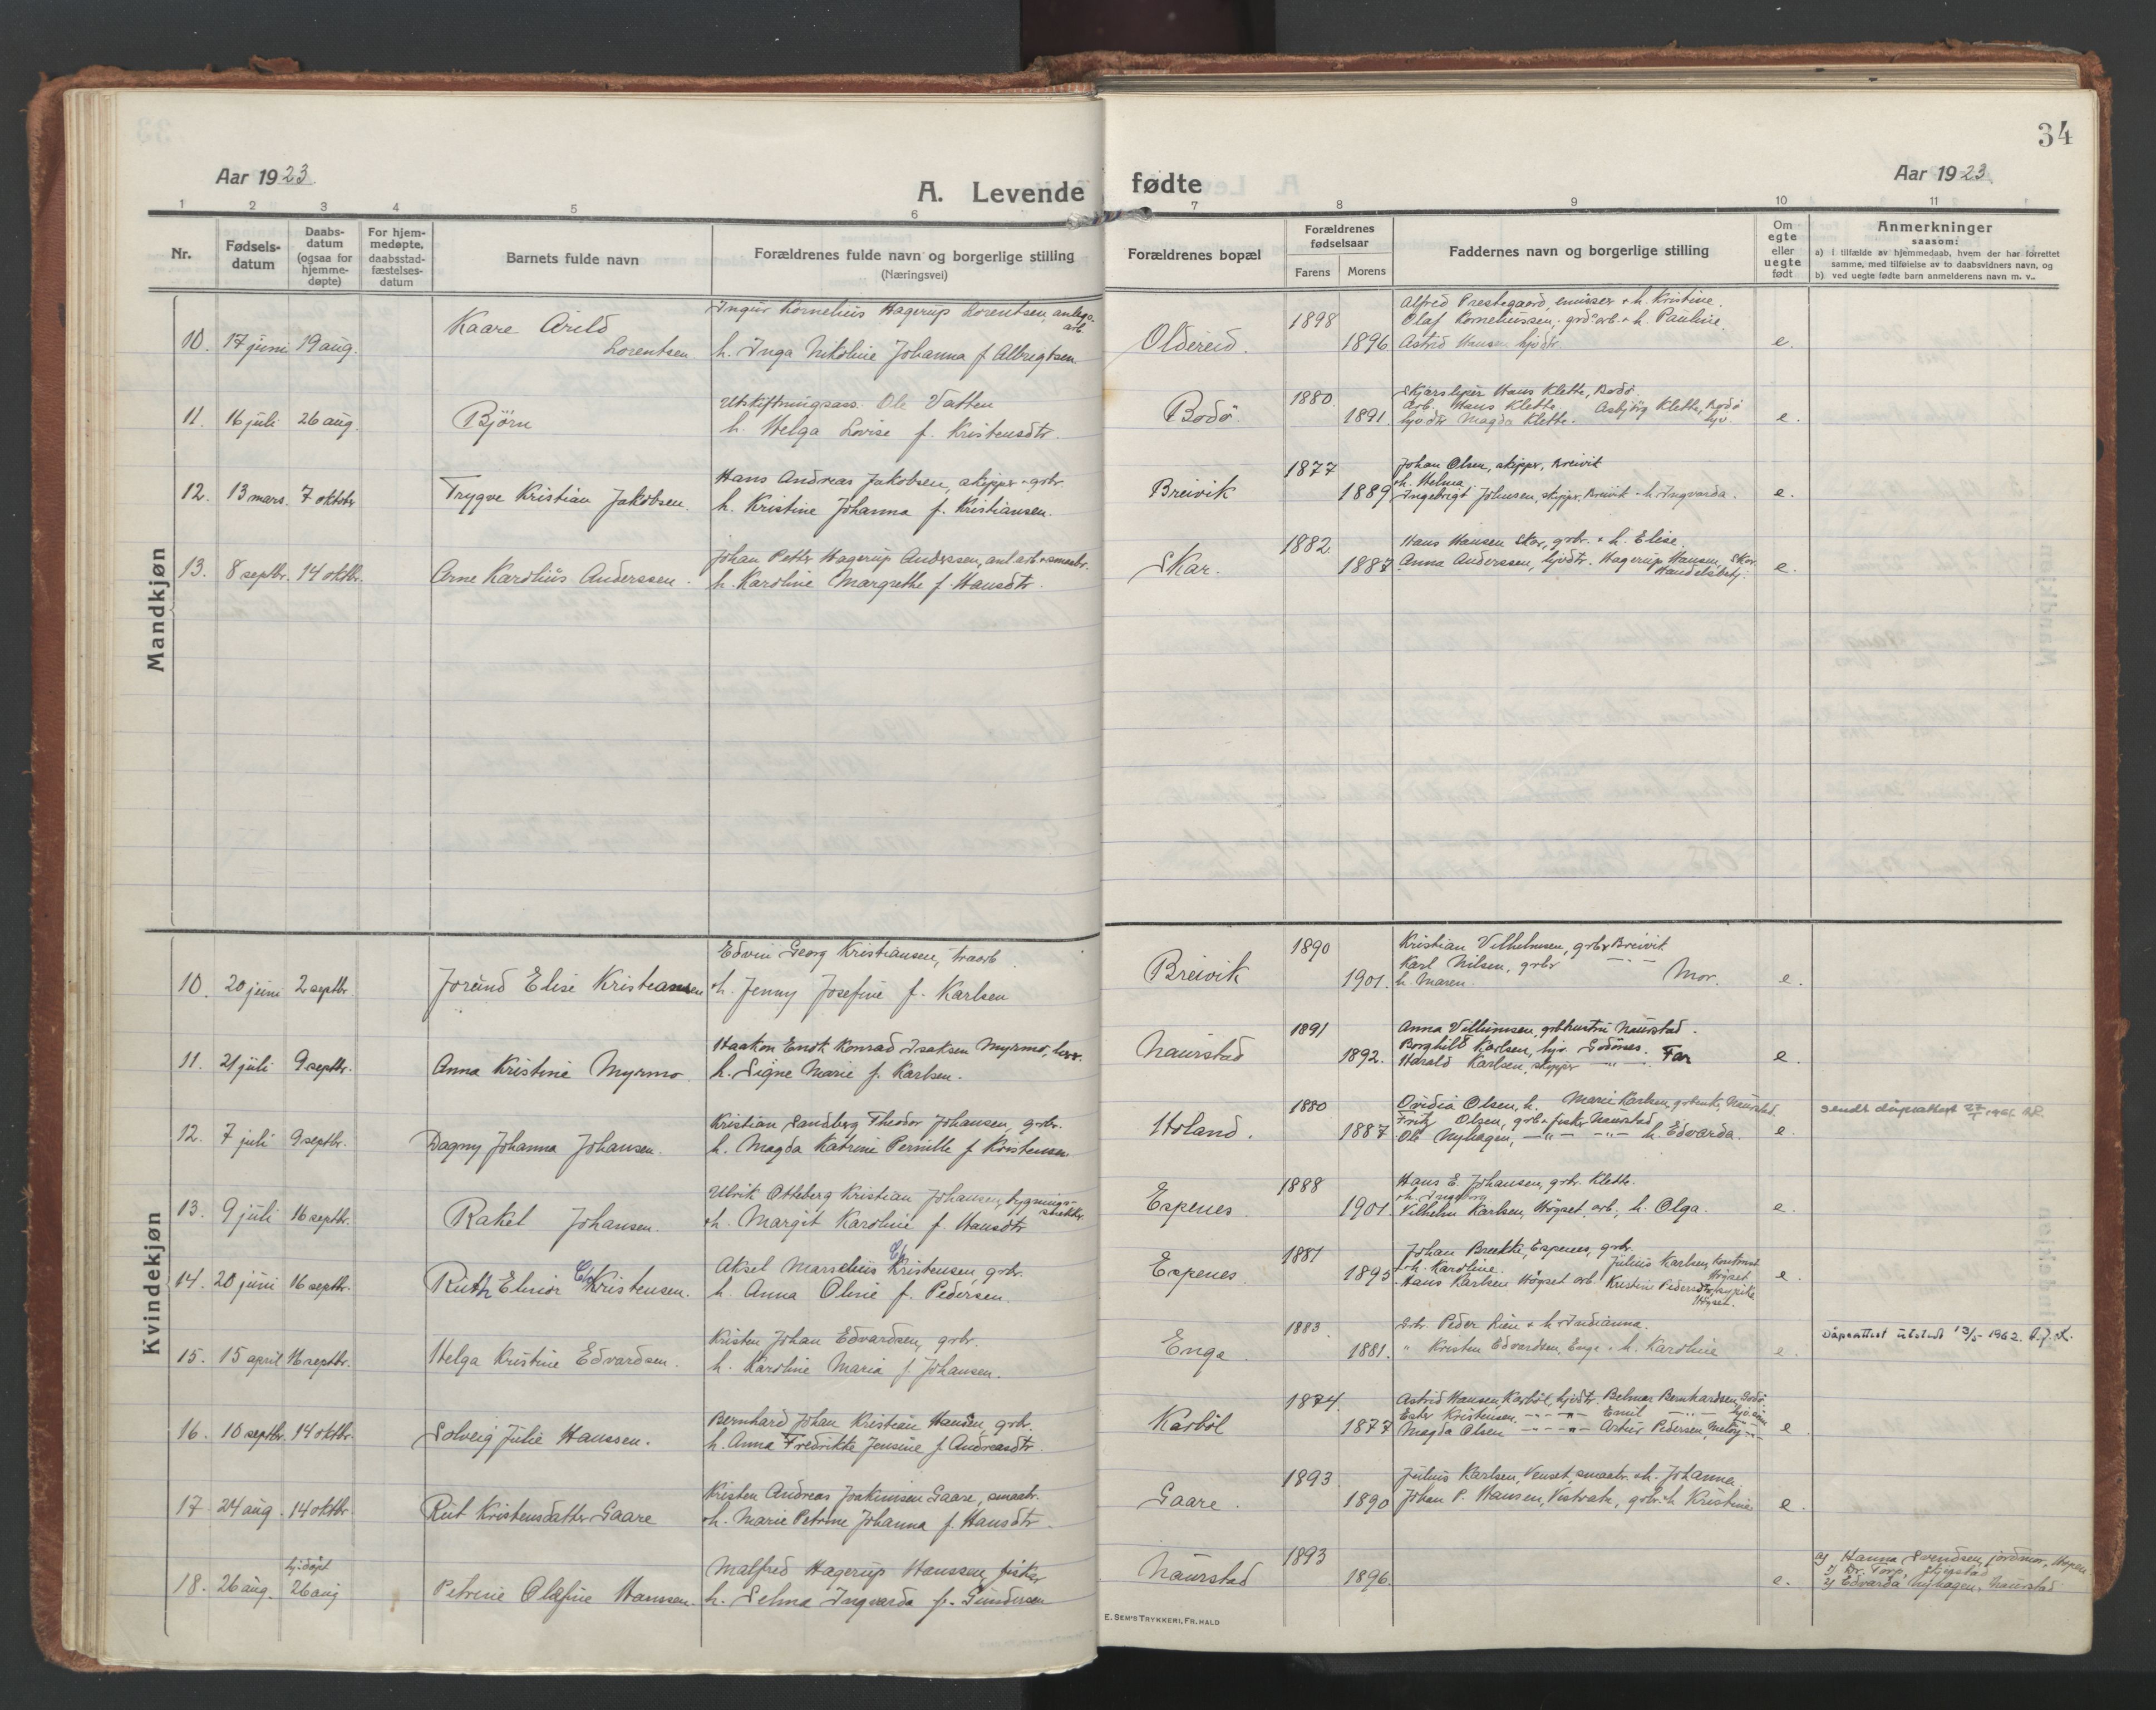 34
Aar 1923.
A. Levende fødte
Aar 1923
1 2 3 4 5 6 7 8 9 10 11
Nr.
Fødsels-
datum
Daabs-
datum
(ogsaa for
hjemme-
døpte)
For hjem-
medøpte,
daabsstad-
fæstelses-
datum
Barnets fulde navn
Forældrenes fulde navn og borgerlige stilling
(Næringsvei)
Forældrenes bopæl
Forældrenes
fødselsaar
Farens Morens
Faddernes navn og borgerlige stilling
Om
egte
eller
uegte
født
Anmerkninger
saasom:
a) i tilfælde av hjemmedaab, hvem der har forrettet
samme, med tilføielse av to daabsvidners navn, og
b) ved uegte fødte barn anmelderens navn m. v..
Mandkjøn
10. 17 juni 19 aug.
Kaare Arild
Lorentsen
Ingvir Kornelius Hagerup Lorentsen, anlegs-
arb.
h. Inga Nikoline Johanna f. Albregtsen
Oldereid.
1898
1896
Alfred Prestegaard, emissær + h. Kristine.
Olaf Korneliussen, grds arb. + h. Pauline
Astrid Hansen hjvdtr.
e.
11. 16 juli 26 aug.
Björn
Utskiftningsass. Ole Vatten
h. Helga Lovise f. Kristensdtr.
Bodö.
1880
1891
Hans Klette, Bodö.
Arb. Hans Klette Asbjörg Klette, Bodö
hjvdtr Magda Klette. hjv.
e.
12. 13 mars. 7 oktbr
Trygve Kristian Jakobsen.
Hans Andreas Jakobsen, skipper + grbr.
h. Kristine Johanna f. Kristiansen.
Breivik
1877
1889
Johan Olsen, skipper, Breivik
+ h. Helma
Ingebrigt Johnsen, skipper, Breivik + h. Ingvarda.
e.
13. 8 septbr. 14 oktbr.
Arne Karolius Anderssen.
Johan Petter Hagerup Anderssen, anl. arb. + smaabr.
h. Karoline Margrethe f. Hansdtr.
Skar.
1882
1887
Hans Hansen Skar, grbr. + h. Elise.
Anna Anderssen, hjvdtr. Hagerup Hansen, Skar
Handelsbetj.
e.
Kvindekjøn
10. 20 juni 2 septbr.
Jorund Elise Kristiansen
Edvin Georg Kristiansen,
+ h. Jenny Josefine f. Karlsen
Breivik
1890
1901.
Kristian Vilhelmsen, grbr Breivik
Karl Nilsen, grbr — " —
h. Maren. Mor.
e.
11. 21 juli 9 septbr.
Anna Kristine Myrmo
Haakon Enok Konrad Isaksen Myrmo,
h. Signe Marie f. Karlsen.
Naurstad
1891
1892.
Anna Villumsen, grbhustru Naurstad.
Borghild Karlsen, hjv. Godönes. Far
Harald Karlsen, skipper — " —
e
12. 7 juli 9 septbr.
Dagny Johanna Johansen.
Kristian Sandberg Theodor Johansen, grbr.
h. Magda Katrine Pernille f. Kristensen
Holand.
1880
1887
Ovidia Olsen, h. Marie Karlsen, Naurstad.
Fritz Olsen, grb + fisker Naurstad
Ole Nyhagen, — " — — " — h. Edvarda.
e.
sendt dåpsattest
13. 9 juli 16 septbr.
Rakel Johansen.
Ulrik Otteberg Kristian Johansen, bygnings-
snekker
+ h. Margit Karoline f. Hansdtr
Espenes
1888
1901.
Hans E. Johansen, grbr. Klette.
+ h. Ingeborg
Vilhelm Karlsen, Högset arb., h. Olga.
e.
14. 20 juni 16 septbr.
Ruth Elinor Ch Kristensen.
Aksel Marselius Ch Kristensen, grbr.
h. Anna Oline f. Pedersen.
Espenes
1881
1895
Johan Brekke, Espenes, grbr.
+ h. Karoline. Julius Karlsen,
Högset
Hans Karlsen Högset arb. Kristine Pedersdtr,
Högset.
e.
15. 15 april 16 septbr.
Helga Kristine Edvardsen.
Kristen Johan Edvardsen, grbr.
h. Karoline Maria f. Johansen.
Enga
1883.
1881.
Grbr. Peder Lien + h. Indianna.
" Kristen Edvardsen, Enge + h. Karoline
e.
Dåpsattest utstedt 13/5 1962.
16. 10 septbr. 14 oktbr.
Solveig Julie Hanssen.
Bernhard Johan Kristian Hansen, grbr.
h. Anna Fredrikke Jensine f. Andreasdtr.
Karböl
1874
1877
Astrid Hansen, Karböl, hjvdtr, Belmar Bernhardsen, Godö
Ester Kristensen, — " — Emil — " —
Magda Olsen — " — Artur Pedersen,
e
17. 24 aug. 14 oktbr.
Rut Kristensdatter Gaare
Kristen Andreas Joakimsen Gaare, smaabr.
+ h. Marie Petrine Johanna f. Hansdtr.
Gaare.
1893
1890
Julius Karlsen, Venset, smaabr. + h. Johanna.
Johan P. Hansen, Vestvatn, grbr. + h. Kristine
e.
18. 26 aug. hj. döpt
26 aug
Petrine Olafine Hanssen.
Malfred Hagerup Hanssen, fisker
h. Selma Ingvarda f. Gundersen
Naurstad
1893
1896.
e.
a) Hanna Svendsen, jordmor, Hopen
1) Dr. Torp,
2) Edvarda Nyhagen, Naurstad
E. SEM'S TRYKKERI, FR. HALD